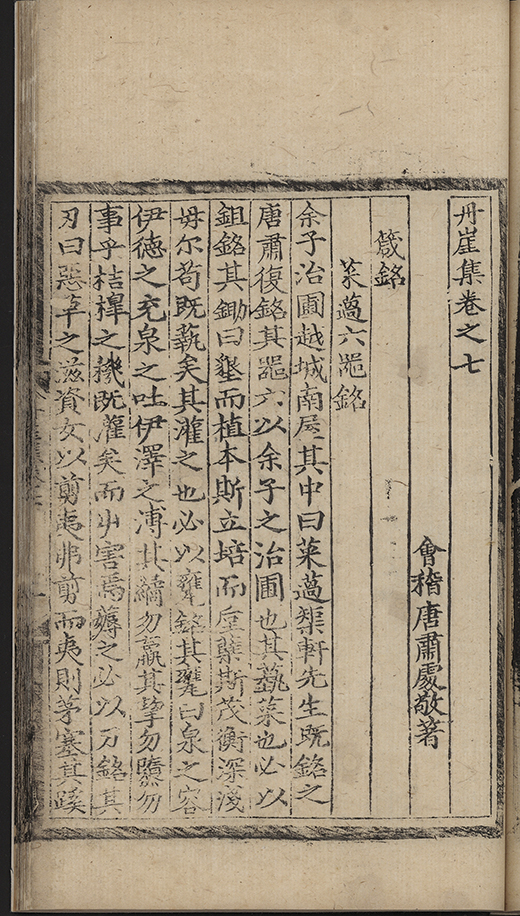 丹崖集卷之七
會稽唐肅處敬著
箴銘
菜薖六噐銘
余子治圃越城南居其中曰菜薖犂軒先生既銘之
唐肅復銘其噐六以余子之治圃也其蓺菜也必以
鉏銘其鋤曰墾而植本斯立培而厚蘖斯茂衡深淺
毋尔苟既蓺矣其灌之也必以甕銘其甕曰泉之容
伊德之充泉之吐伊澤之溥其繘勿羸其挈勿隳勿
事乎桔橰之機既灌矣而艸害焉薅之必以刀銘其
刃曰惡草之滋資女以剪夷弗剪而夷則茅塞其蹊